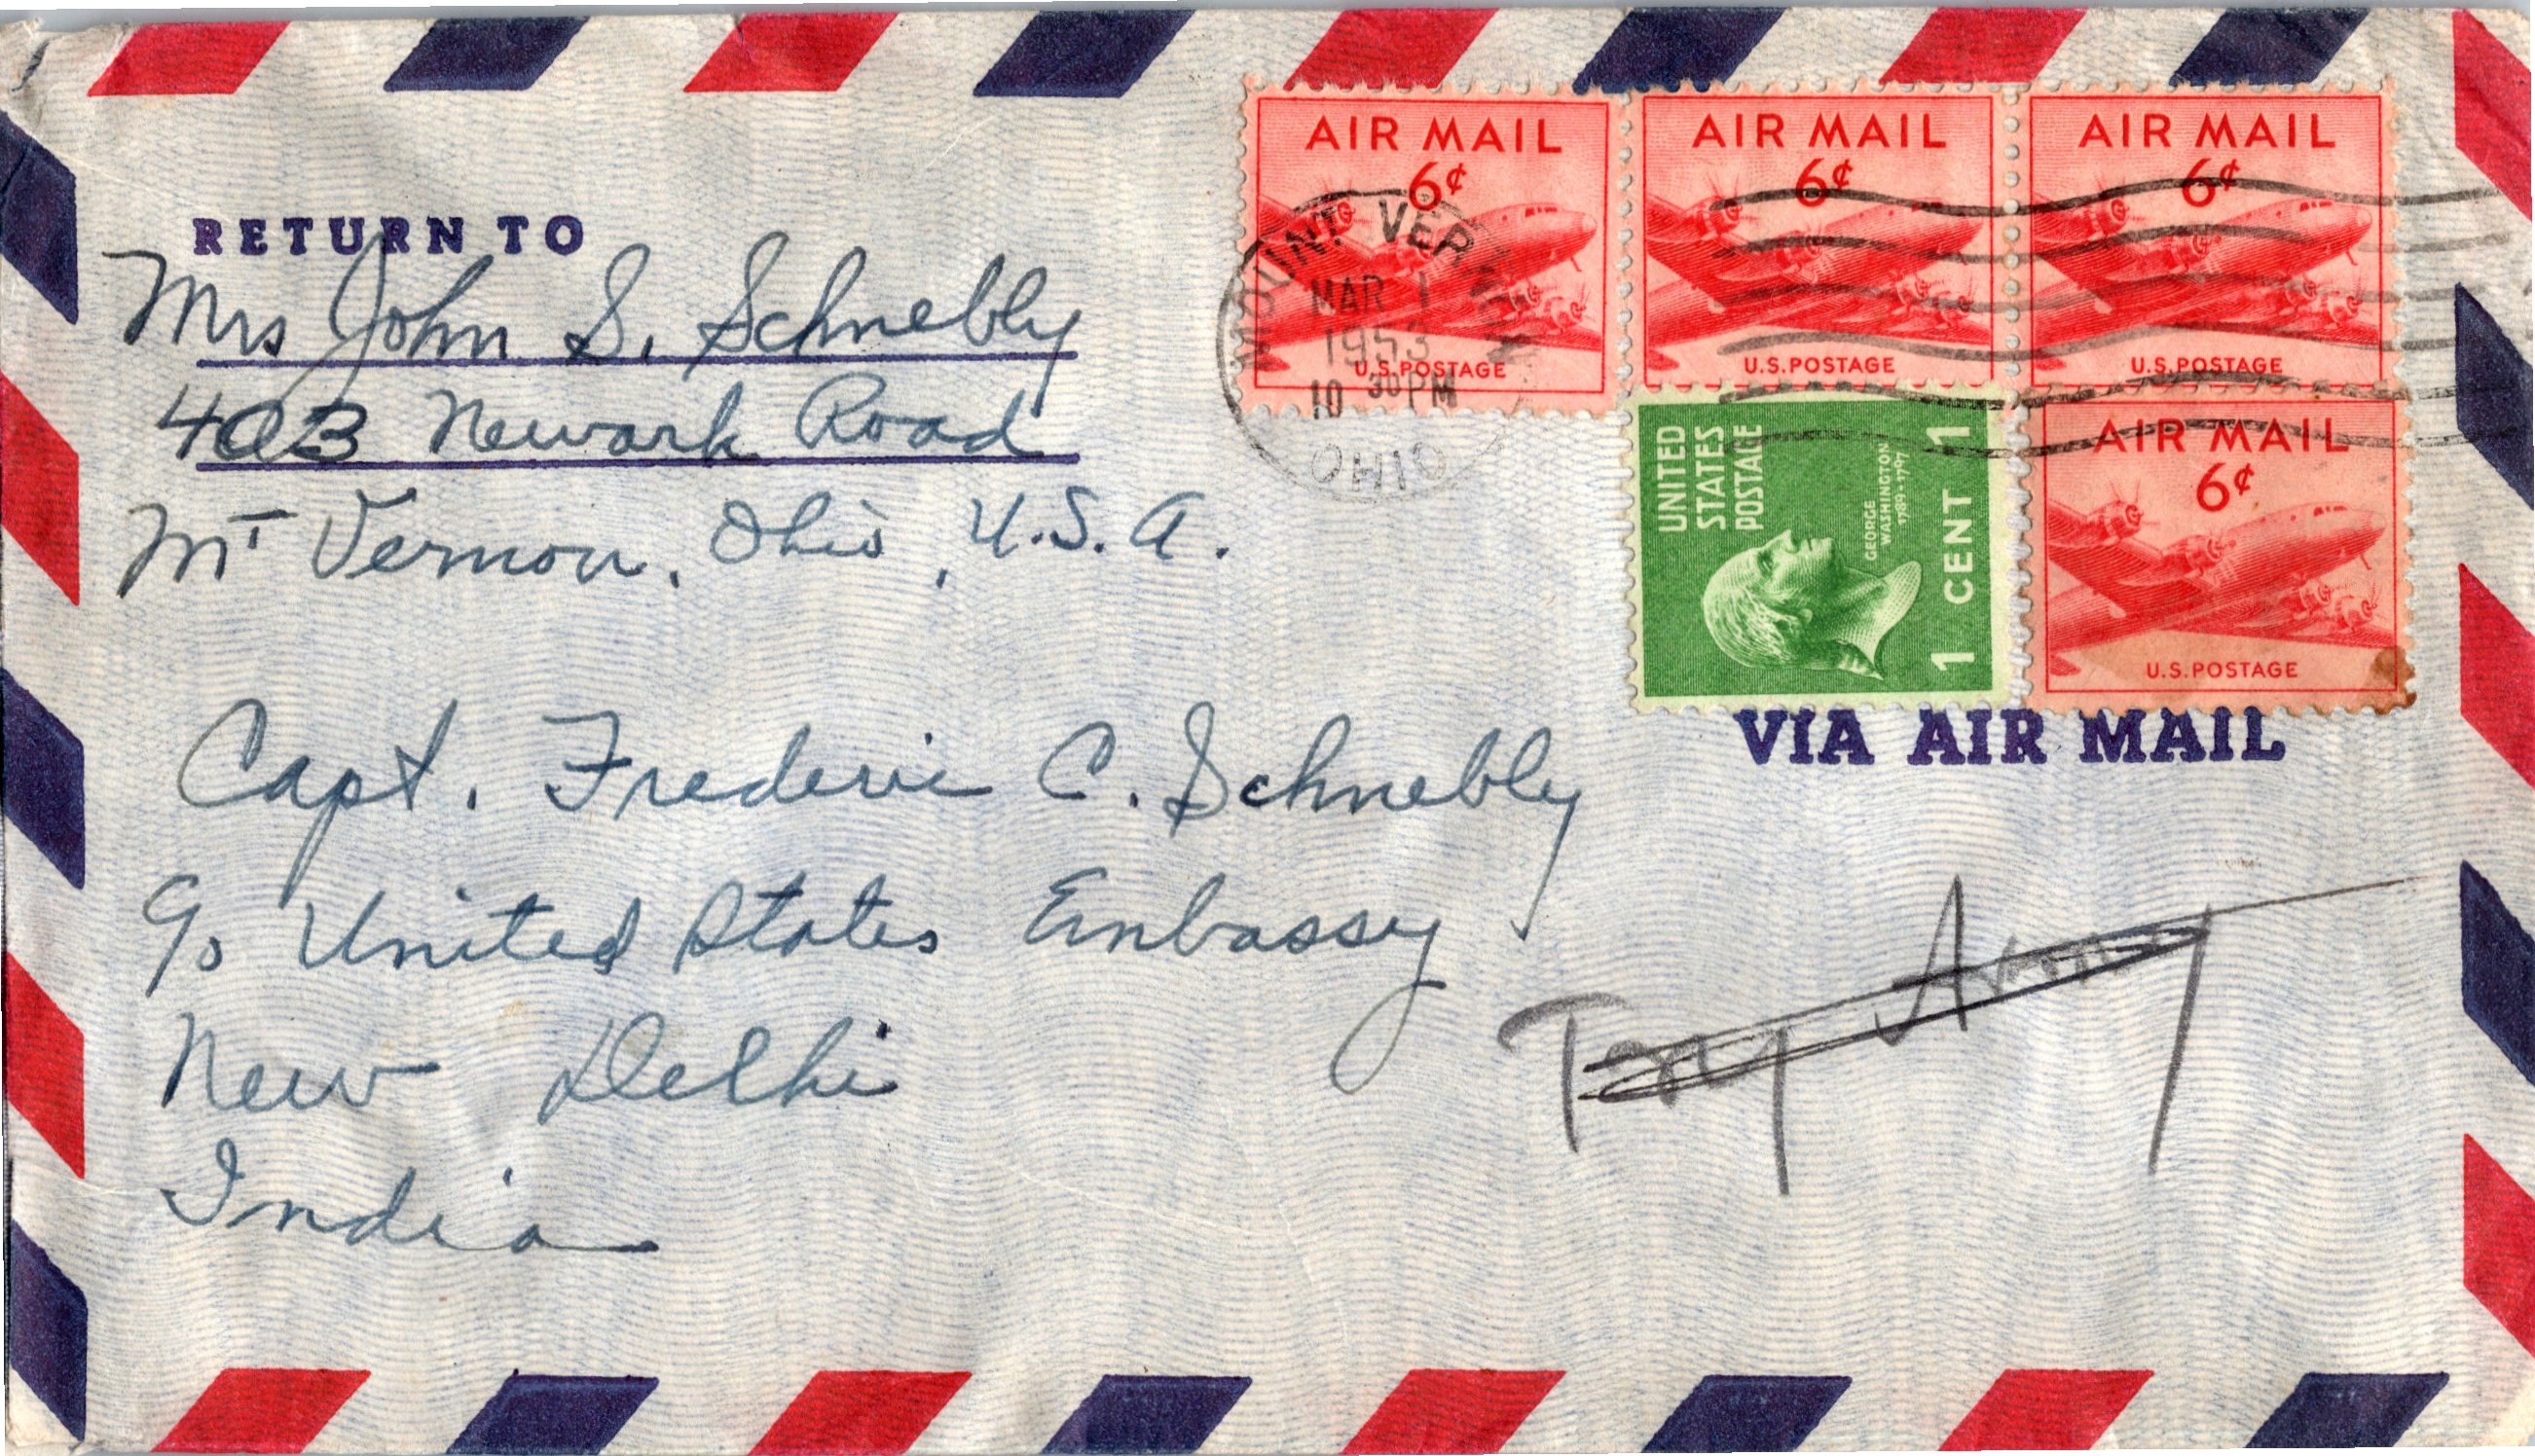 RETURN TO
Mrs John S. Schnebly
403 Newark Road
Mt Vernon, Ohio, U.S.A.
AIR MAIL
6¢
U.S. POSTAGE
AIR MAIL
6¢
U.S. POSTAGE
AIR MAIL
6¢
U.S. POSTAGE
MOUNT VERNON
MAR 1
1953
10 30 PM
OHIO
UNITED
STATES
POSTAGE
GEORGE
WASHINGTON
1789-1797
1 CENT 1
AIR MAIL
6¢
U.S. POSTAGE
VIA AIR MAIL
Capt. Frederic C. Schnebly
c/o United States Embassy
New Delhi
India
Army